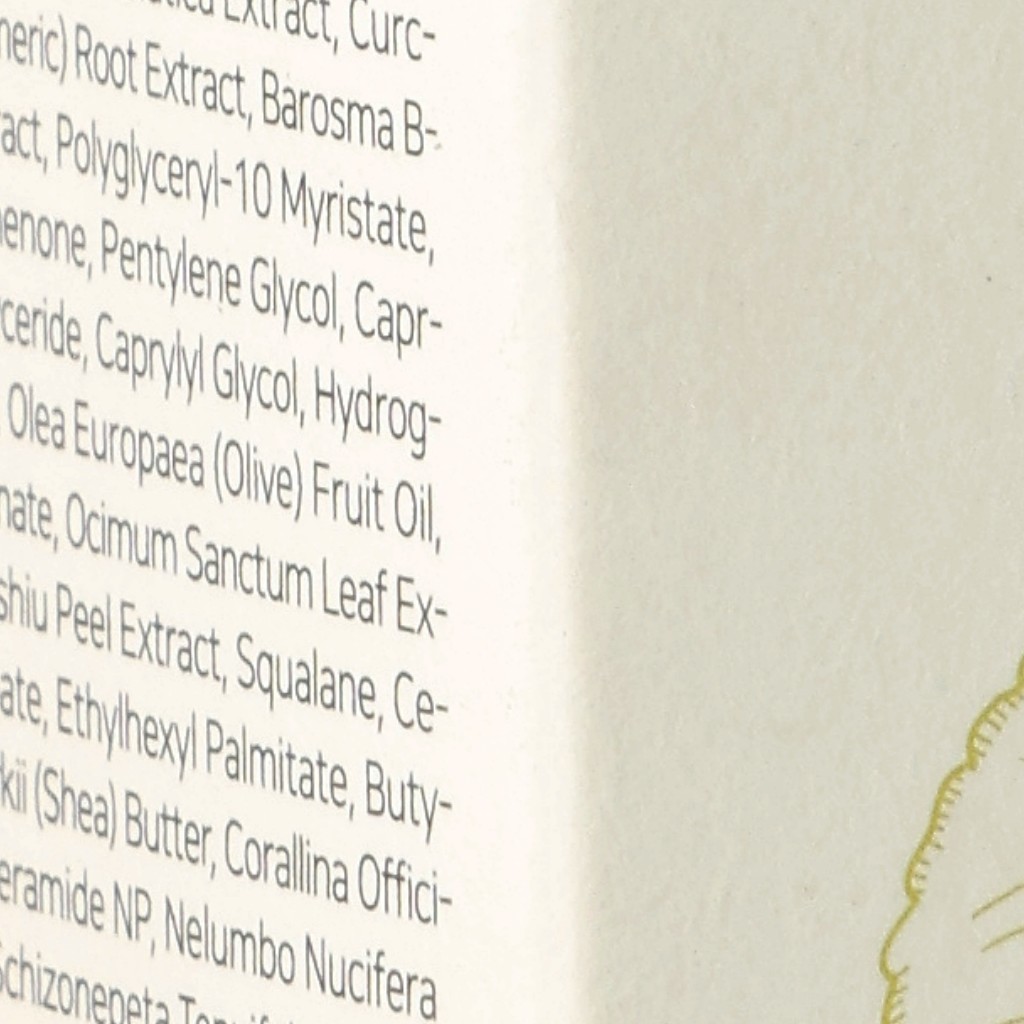 Extract, Curc-
Root Extract, Barosma B-
Polyglyceryl-10 Myristate,
Pentylene Glycol, Capr-
Caprylyl Glycol, Hydrog-
Olea Europaea (Olive) Fruit Oil,
Ocimum Sanctum Leaf Ex-
Peel Extract, Squalane, Ce-
Ethylhexyl Palmitate, Buty-
(Shea) Butter, Corallina Offici-
NP, Nelumbo Nucifera